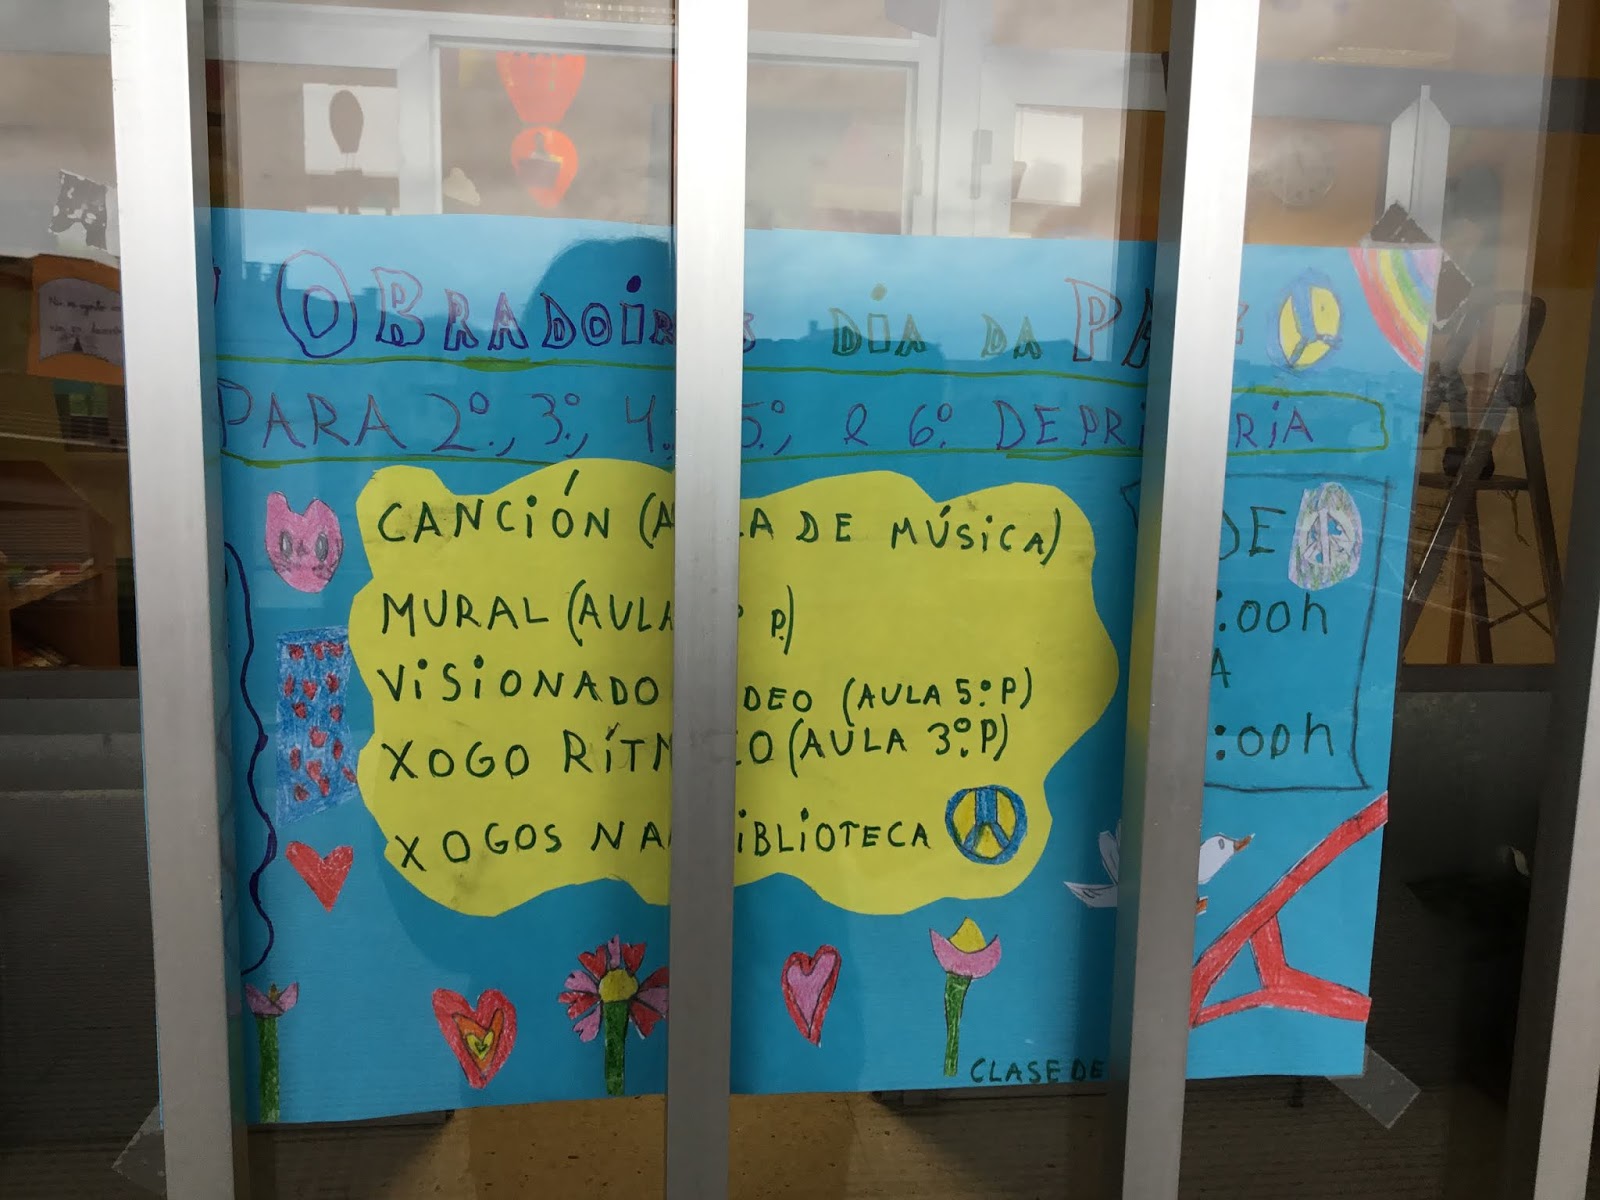 OBRADOIR DIA DA PA
PARA 2º., 3º., 4. 5º., e 6º. DE PRI RIA
CANCIÓN (A A DE MÚSICA)
MURAL (AULA º P.)
VISIONADO DEO (AULA 5º P)
XOGO RÍTM CO (AULA 3º. P)
XOGOS NA BIBLIOTECA
DE
:00h
A
:00h
CLASE DE